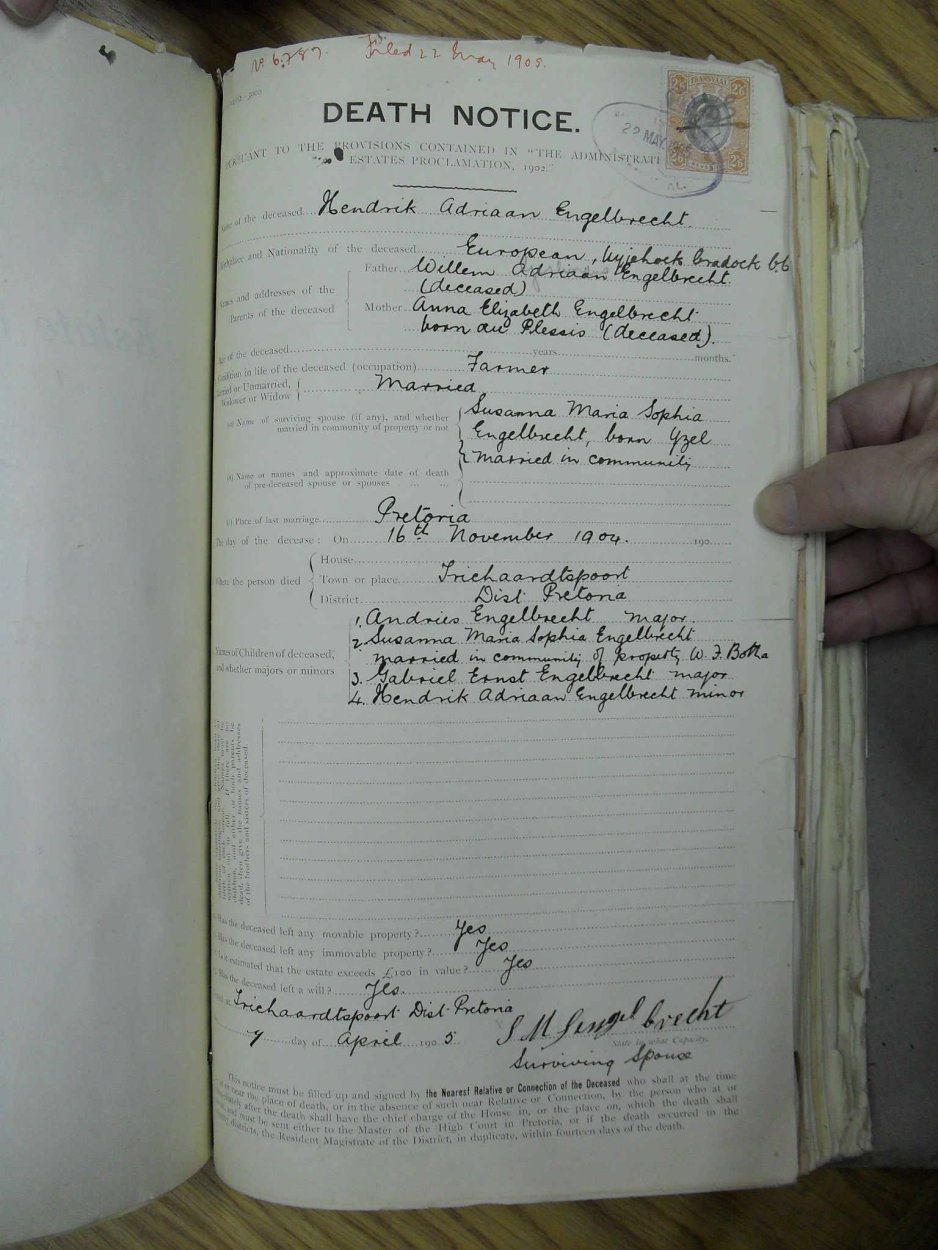 No 6787. Filed 22 May 1905.
DEATH NOTICE.
TRANSVAAL
2/6 2/6
22 MAY
PURSUANT TO THE PROVISIONS CONTAINED IN "THE ADMINISTRATI
ESTATES PROCLAMATION, 1902."
Name of the deceased Hendrik Adriaan Engelbrecht
Birthplace and Nationality of the deceased European, Cradock
Names and addresses of the Parents of the deceased
Father Willem Adriaan Engelbrecht
(deceased)
Mother Anna Elizabeth Engelbrecht
born du Plessis (deceased).
Age of the deceased years months.
Condition in life of the deceased (occupation) Farmer
Married or Unmarried, Widower or Widow Married
(a) Name of surviving spouse (if any), and whether married in community of property or not
Susanna Maria Sophia
Engelbrecht, born Yzel
married in community
(b) Name or names and approximate date of death
of pre-deceased spouse or spouses
(c) Place of last marriage Pretoria
The day of the decease: On 16th November 1904. 190
Where the person died
House
Town or place Trichaardtspoort
District Dist Pretoria
Names of Children of deceased, and whether majors or minors
1. Andries Engelbrecht major
2. Susanna Maria Sophia Engelbrecht
married in community of property W. F. Botha
3. Gabriel Ernst Engelbrecht major
4. Hendrik Adriaan Engelbrecht minor
dead, then give the names and addresses
of the brothers and sisters of deceased.
Has the deceased left any movable property? Yes
Has the deceased left any immovable property? Yes
Is it estimated that the estate exceeds £100 in value? Yes
Has the deceased left a will? Yes.
Trichaardtspoort Dist Pretoria
7 day of April 190 5
S M S Engelbrecht
State in what Capacity.
Surviving Spouse
This notice must be filled up and signed by the Nearest Relative or Connection of the Deceased who shall at the time
or near the place of death, or in the absence of such near Relative or Connection, by the person who at or
immediately after the death shall have the chief charge of the House in, or the place on, which the death shall
and must be sent either to the Master of the High Court in Pretoria, or if the death occurred in the
districts, the Resident Magistrate of the District, in duplicate, within fourteen days of the death.